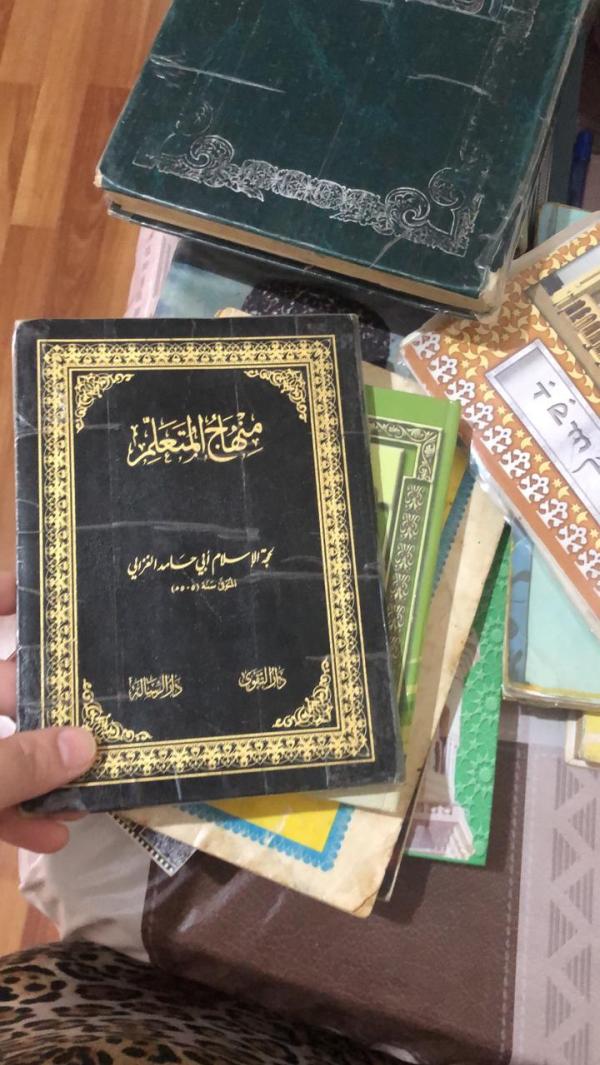 منهاج المتعلم
لحجة الإسلام أبي حامد الغزالي
المتوفى سنة (٥٠٥هـ)
دار التقوى دار الرسالة